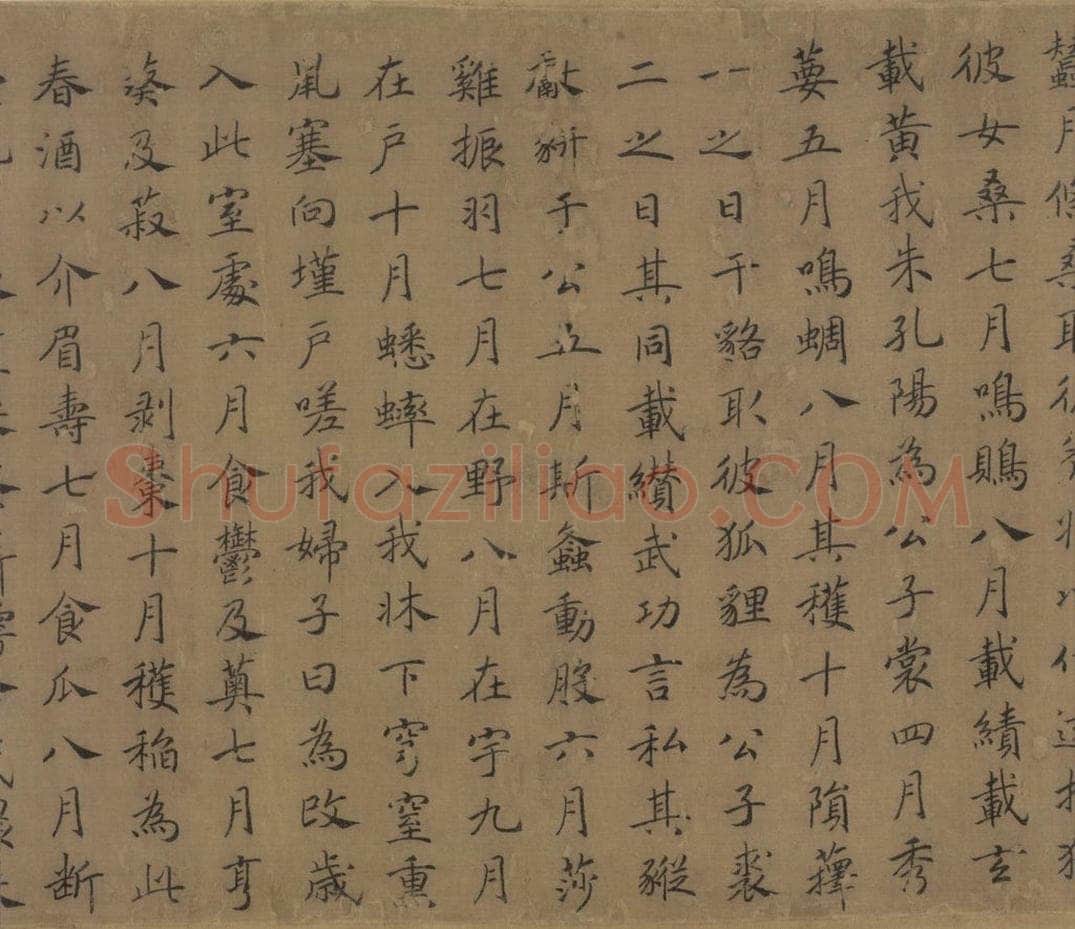 蠶月條桑取彼斧斨以伐遠揚猗
彼女桑七月鳴鵙八月載績載玄
載黃我朱孔陽為公子裳四月秀
葽五月鳴蜩八月其穫十月隕蘀
一之日于貉取彼狐貍為公子裘
二之日其同載纘武功言私其豵
獻豜于公五月斯螽動股六月莎
雞振羽七月在野八月在宇九月
在戶十月蟋蟀入我牀下穹窒熏
鼠塞向墐戶嗟我婦子曰為改歲
入此室處六月食鬱及薁七月亨
葵及菽八月剝棗十月穫稻為此
春酒以介眉壽七月食瓜八月斷
Shufaziliao.COM